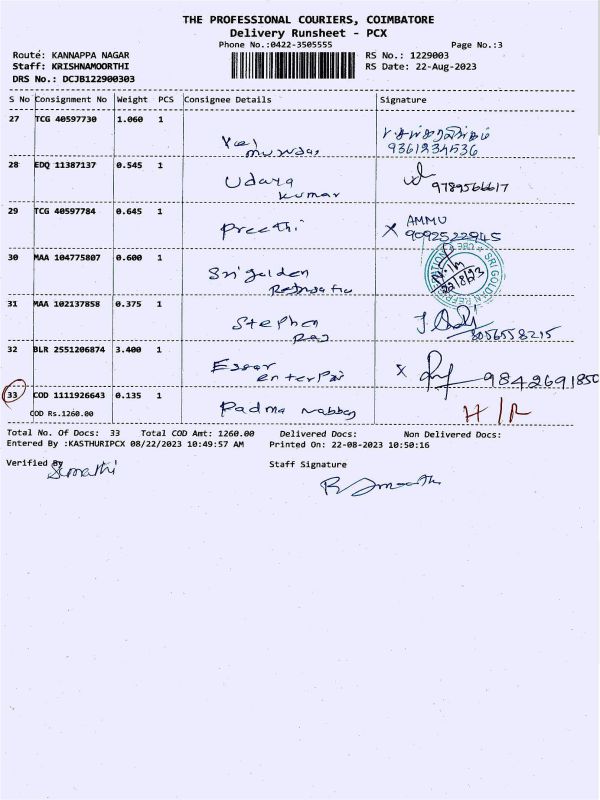 THE PROFESSIONAL COURIERS, COIMBATORE
Delivery Runsheet - PCX
Phone No.:0422-3505555 Page No.:3
Route: KANNAPPA NAGAR RS No.: 1229003
Staff: KRISHNAMOORTHI RS Date: 22-Aug-2023
DRS No.: DCJB122900303
S No Consignment No Weight PCS Consignee Details Signature
27 TCG 40597730 1.060 1
9361234536
28 EDQ 11387137 0.545 1 Udaya
kumar 9789566617
29 TCG 40597784 0.645 1 Preethi X AMMU
9092522945
30 MAA 104775807 0.600 1 Sri golden
22/8/23
31 MAA 102137858 0.375 1 Stephen
Raj 8056558215
32 BLR 2551206874 3.400 1 Essar
X 9842691850
33 COD 1111926643 0.135 1 Padma H/R
COD Rs.1260.00
Total No. Of Docs: 33 Total COD Amt: 1260.00 Delivered Docs: Non Delivered Docs:
Entered By :KASTHURIPCX 08/22/2023 10:49:57 AM Printed On: 22-08-2023 10:50:16
Verified By Staff Signature